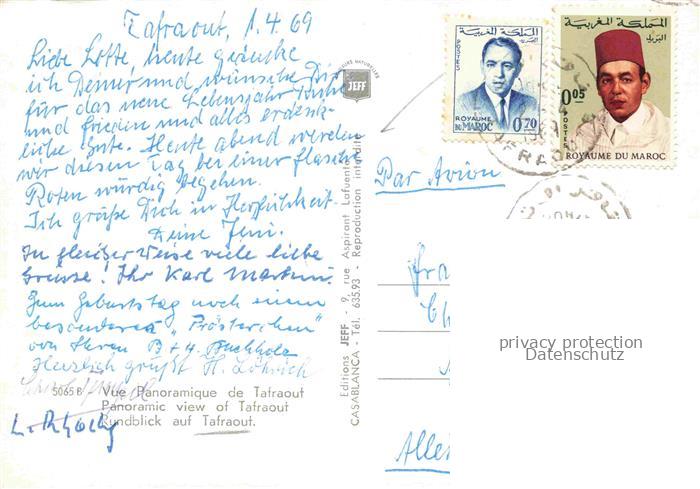 Tafraout, 1.4.69
Liebe Lotte, heute gedenke
ich Deiner und wünsche Dir
für das neue Lebensjahr
und Frieden und alles erdenk-
liche Gute. Heute abend werden
wir diesen Tag bei einer Flasche
Roten würdig begehen.
Ich grüße Dich in Herzlichkeit.
Deine Jeni.
In gleicher Weise viele liebe
Grüsse! Ihr Karl
Zum Geburtstag noch einen
besonderen "Prösterchen"
von Ihren B + H. Buchholz
Herzlich grüßt H.
5065 B - Vue Panoramique de Tafraout
Panoramic view of Tafraout
Rundblick auf Tafraout.
JEFF
Editions JEFF - 9, rue Aspirant Lafuente
CASABLANCA - Tél. 635.93 - Reproduction interdite
المملكة المغربية
البريد
POSTES
ROYAUME
DU MAROC
0,70
المملكة المغربية
البريد
0.05
POSTES
ROYAUME DU MAROC
Par Avion
Fra
Allei
privacy protection
Datenschutz